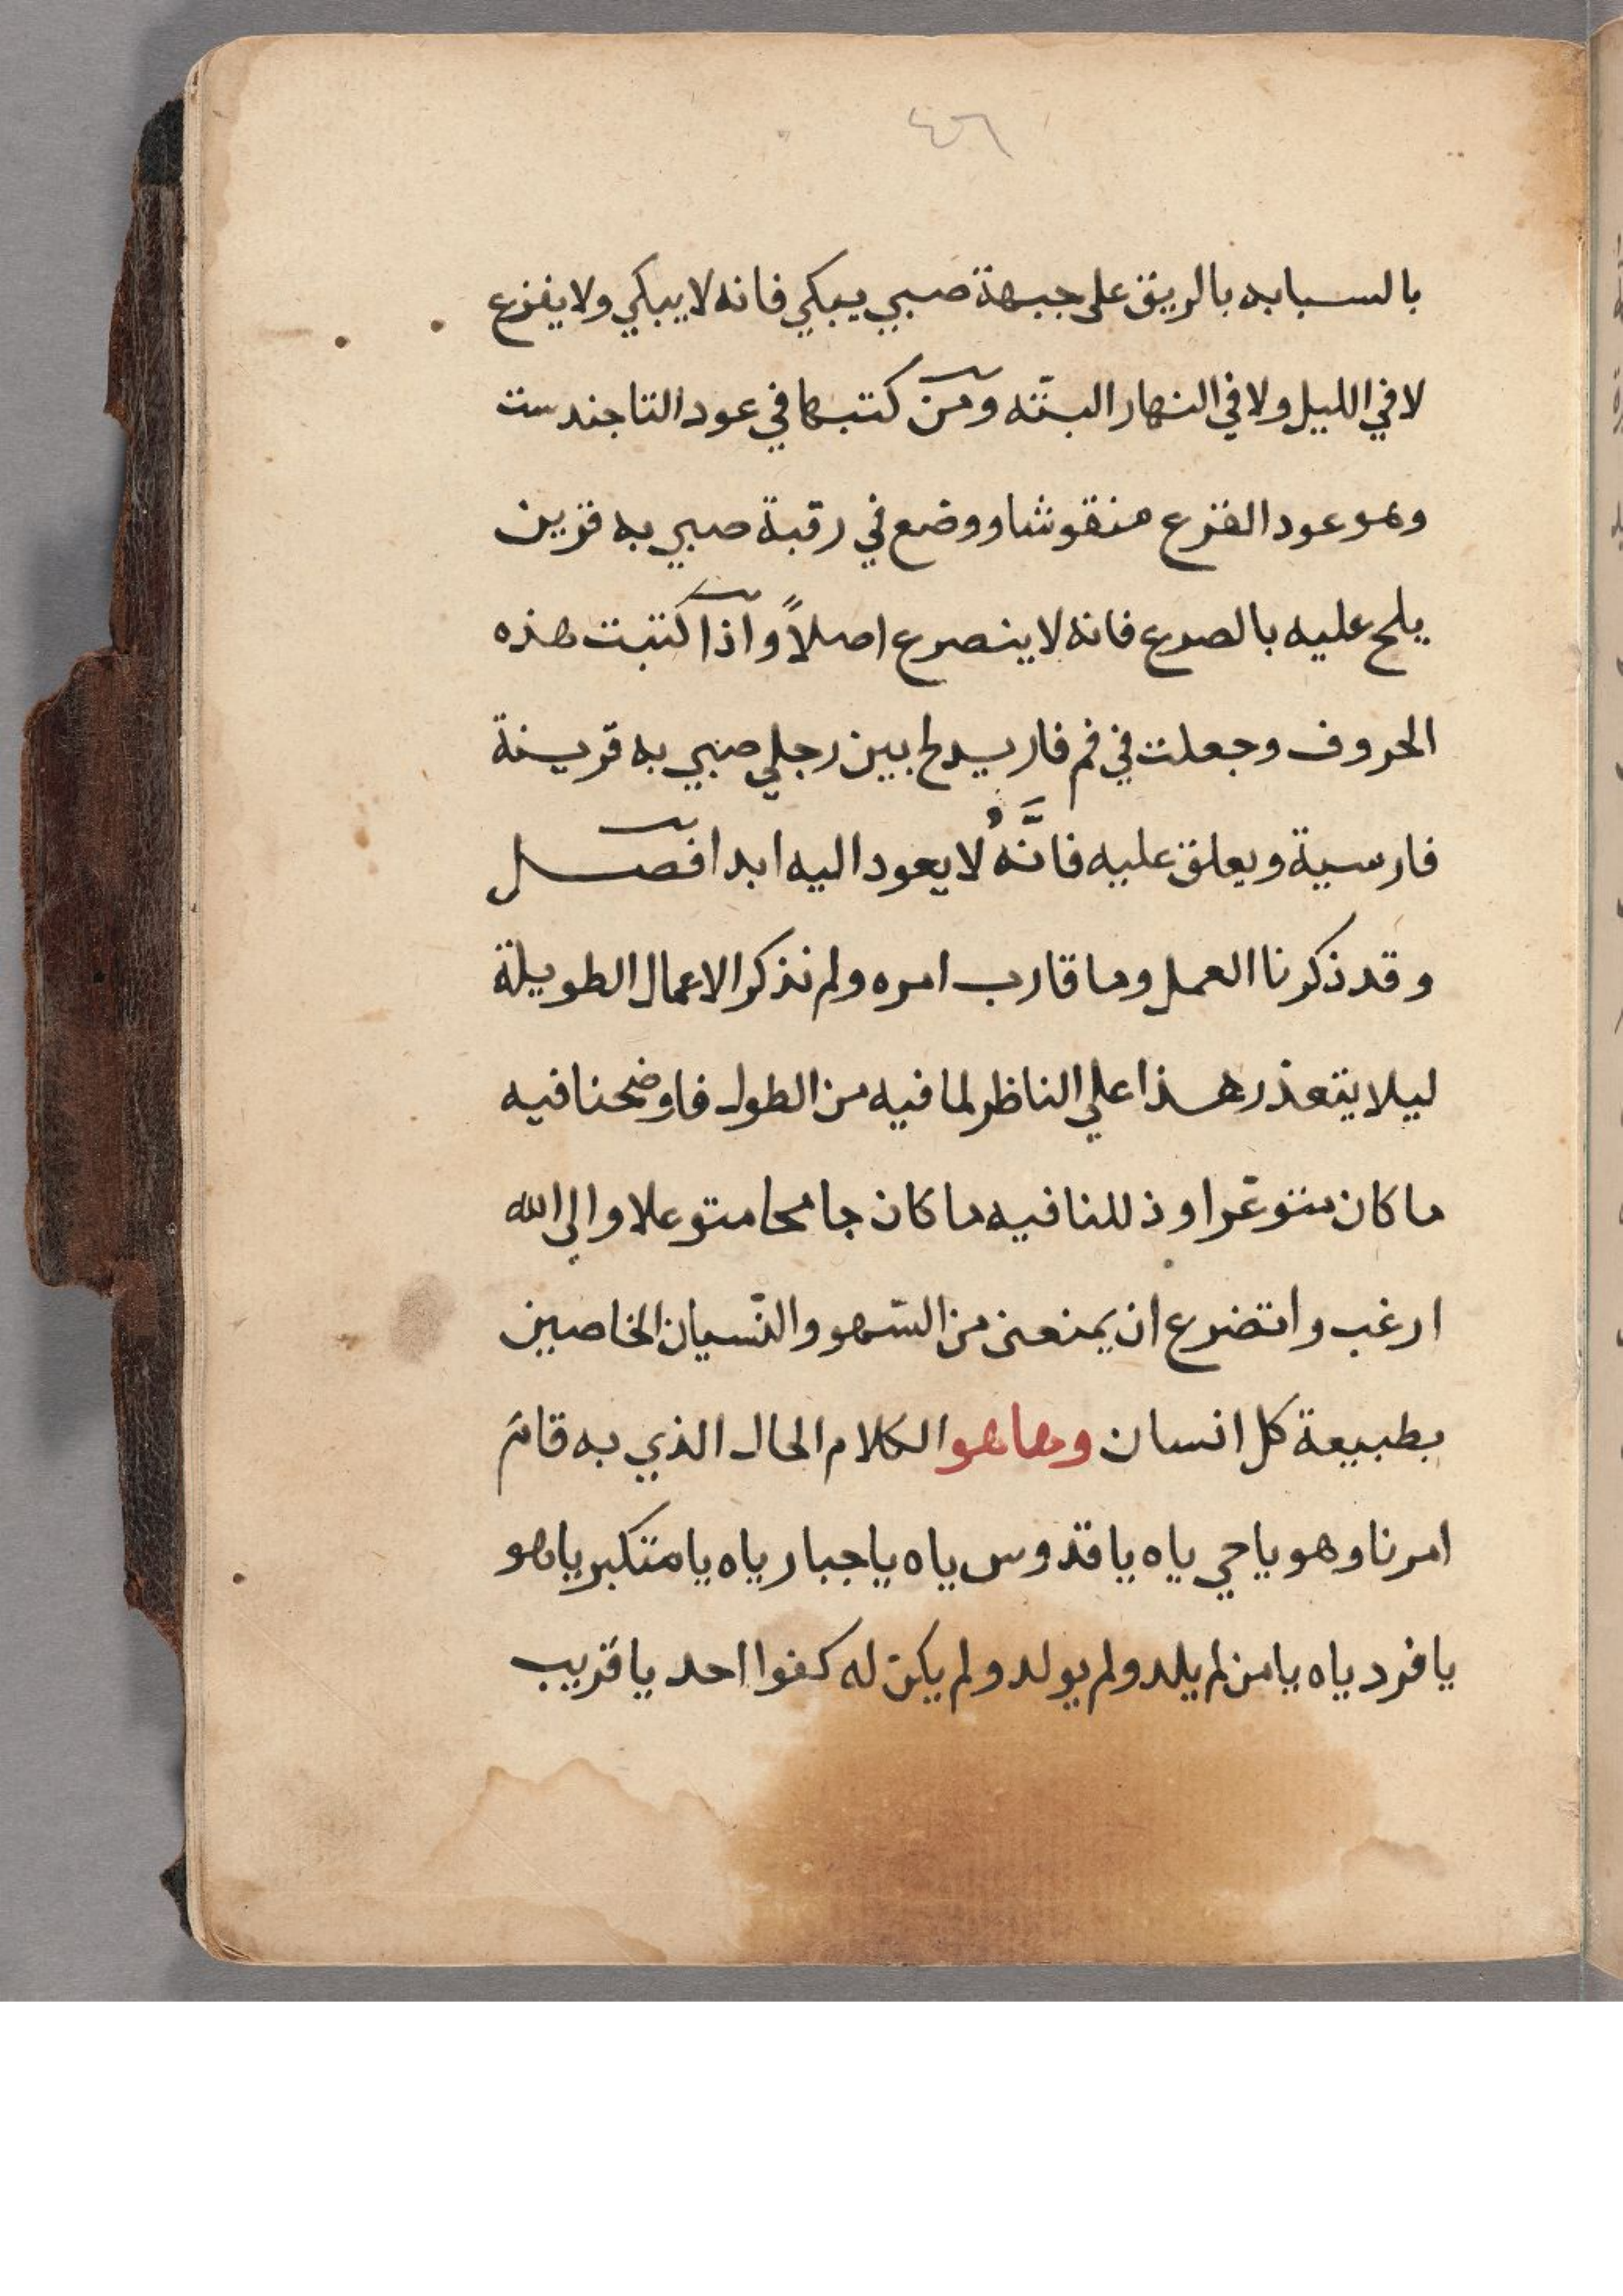 ٤٦
بالسبابه بالريق على جبهة صبي يبكي فانه لا يبكي ولا يفزع
لا في الليل ولا في النهار البتّه ومن كتبها في عود التاجندست
وهو عود الفزع منقوشا ووضع في رقبة صبي به قرين
يلح عليه بالصرع فانه لا ينصرع اصلاً واذا كتبت هذه
الحروف وجعلت في فم فار يدلح بين رجلي صبي به قرينة
فارسية ويعلق عليه فانَّهُ لا يعود اليه ابدا فصل
وقد ذكرنا العمل وما قارب امره ولم نذكر الاعمال الطويلة
ليلا يتعذر هذا علي الناظر لما فيه من الطول فاوضحنا فيه
ما كان متوعّرا وذللنا فيه ما كان جامحا متوعلا والى الله
ارغب واتضرع ان يمنعنى من السّهو والنّسيان الخاصين
بطبيعة كل انسان وها هو الكلام الحال الذي به قائم
امرنا وهو يا حي ياه يا قدوس ياه يا جبار ياه يا متكبر يا هو
يا فرد ياه يا من لم يلد ولم يولد ولم يكن له كفوا احد يا قريب